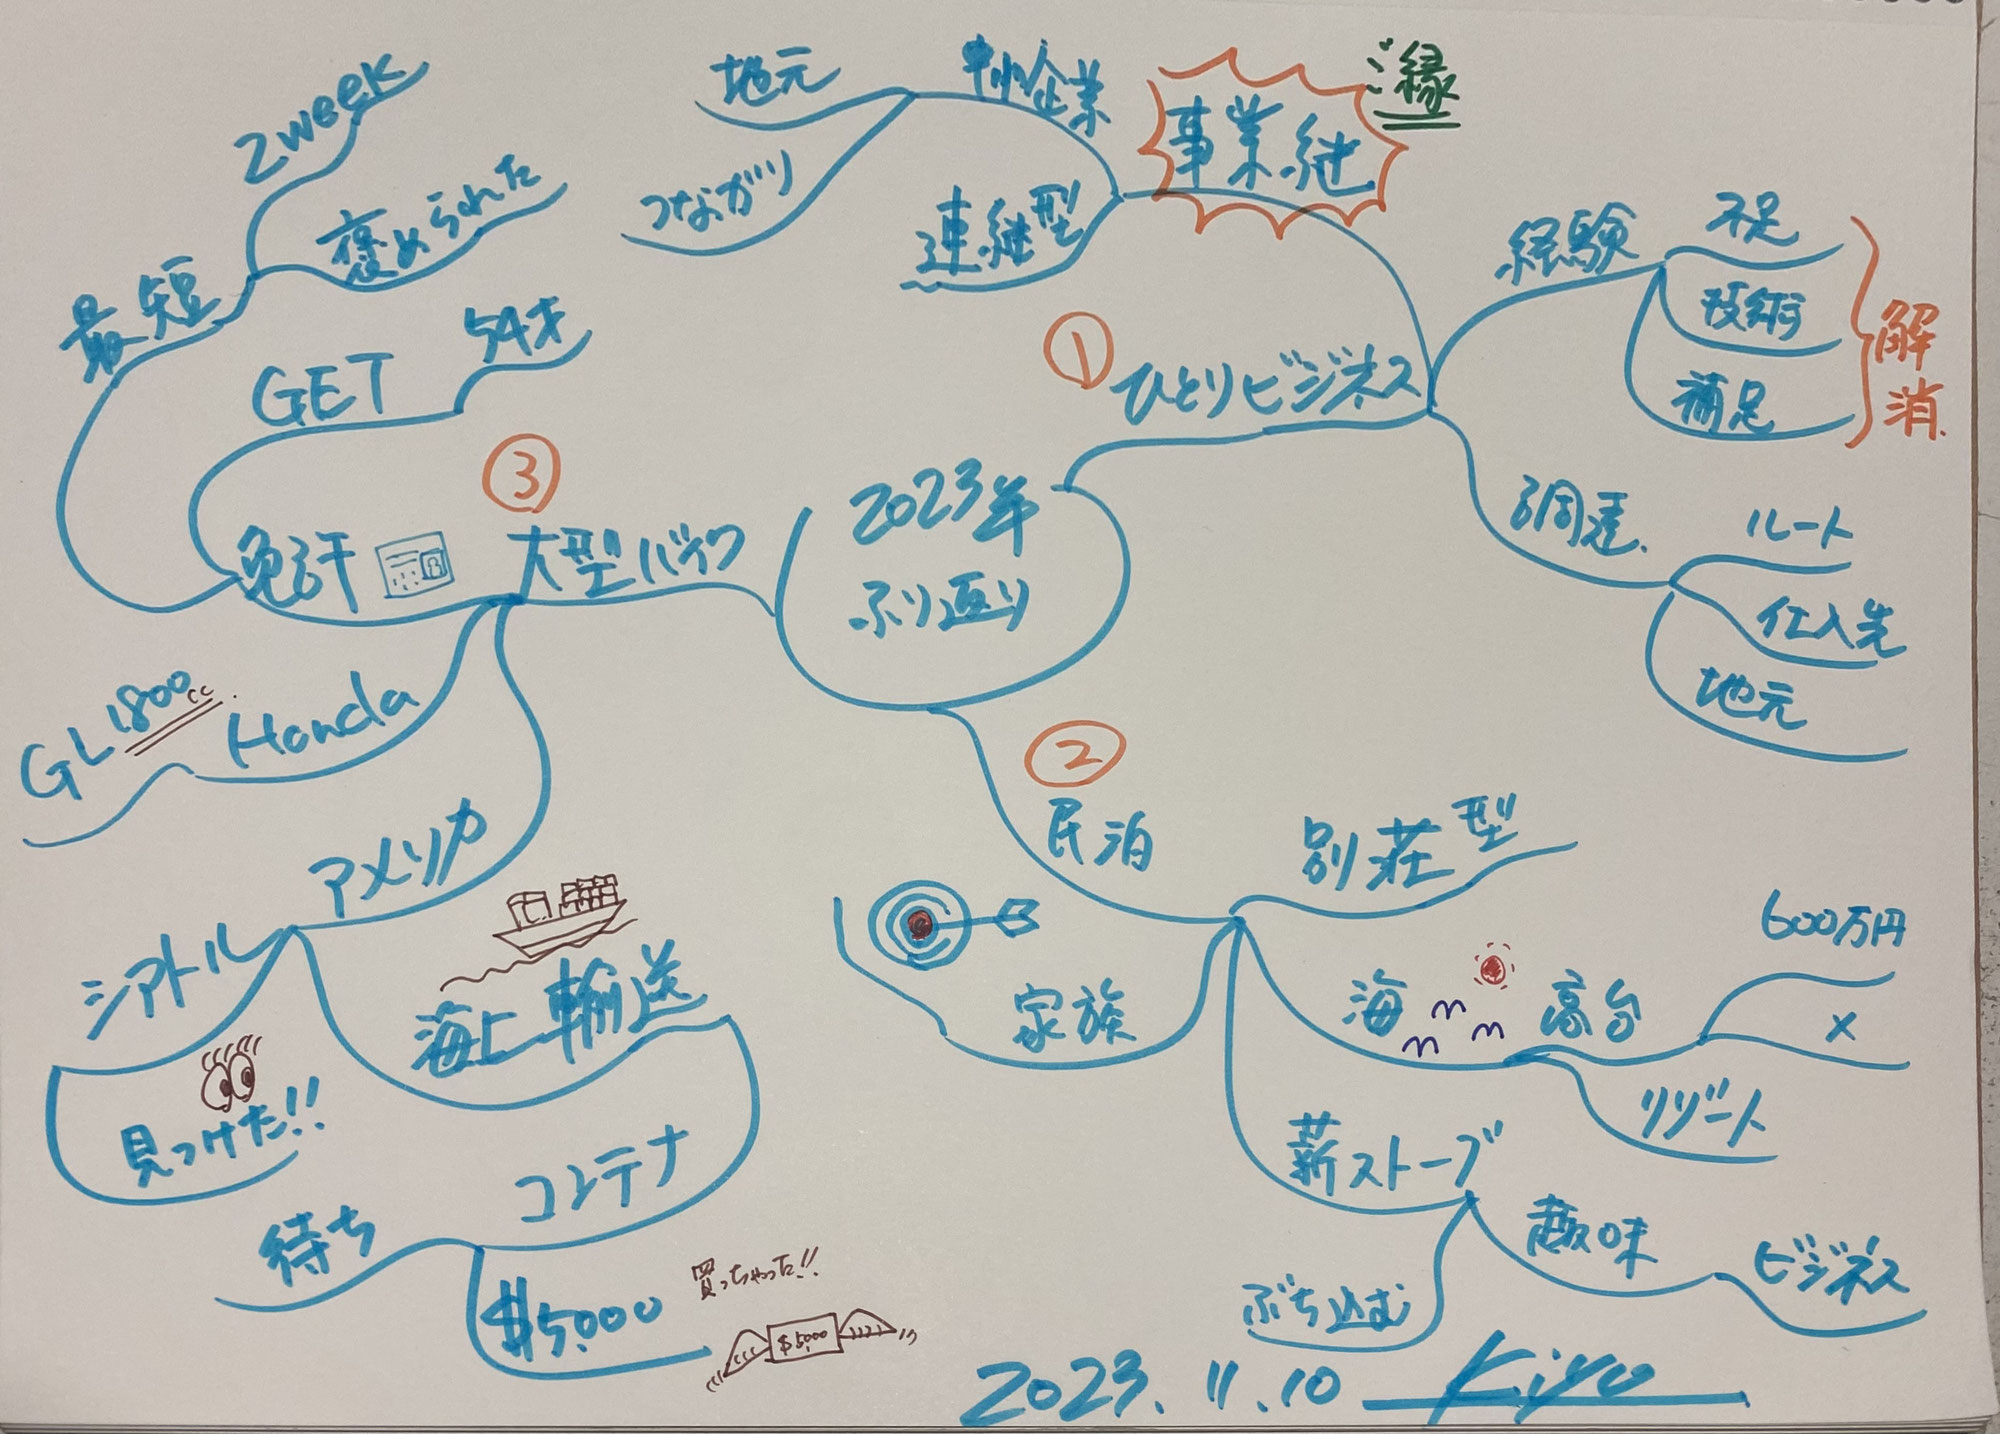 2023年
ふり返り
①
ひとりビジネス
事業継
縁
中小企業
地元
つながり
連継型
経験
不足
技術
補足
解消
調達
ルート
仕入先
地元
②
民泊
別荘型
海
高台
600万円
×
リゾート
薪ストーブ
趣味
ビジネス
ぶち込む
家族
③
大型バイク
免許
GET
54才
最短
2week
褒められた
Honda
GL1800cc
アメリカ
シアトル
見つけた!!
海上輸送
コンテナ
待ち
$5,000
買っちゃった!!
$5,000
2023.11.10 Kiyo